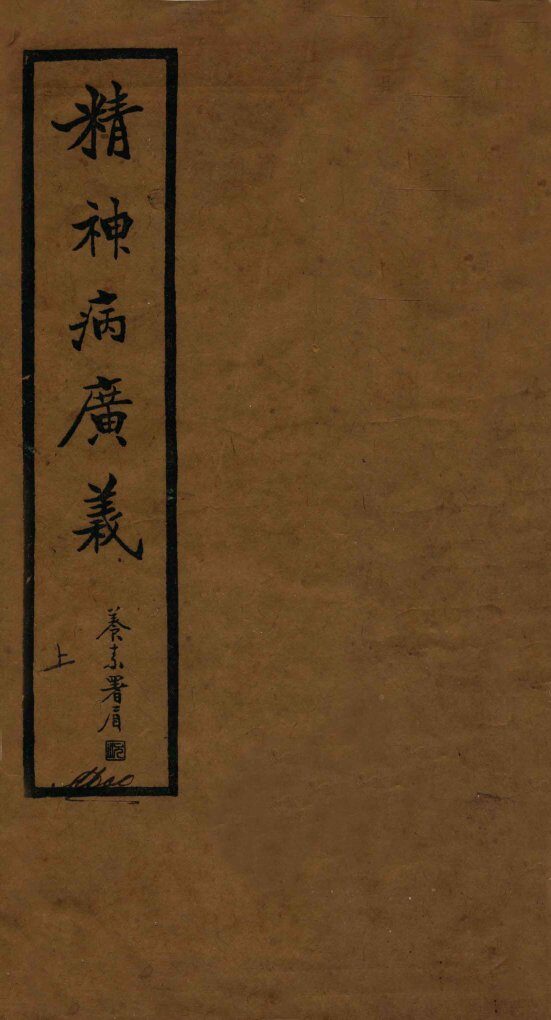 精神病廣義
上
養素署眉